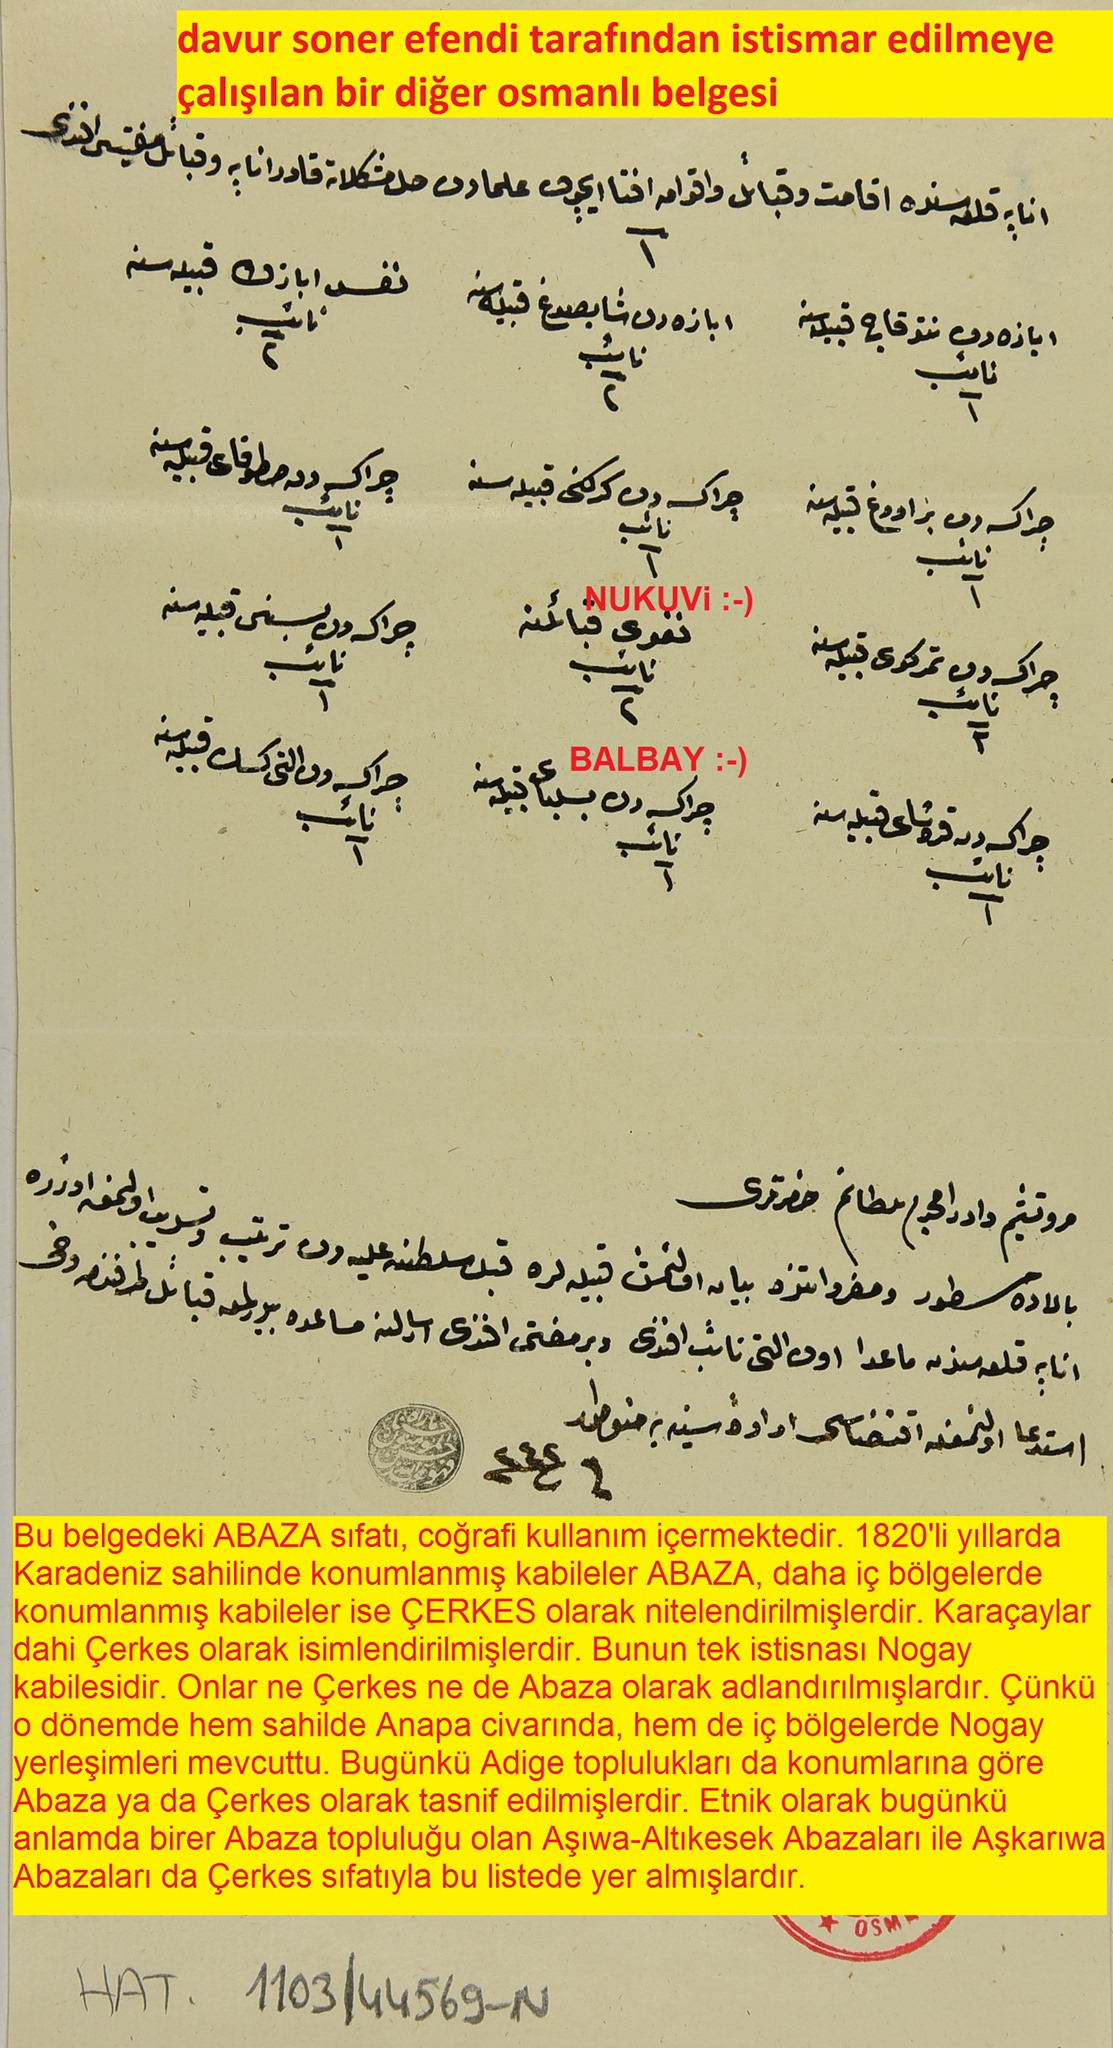 davur soner efendi tarafından istismar edilmeye
çalışılan bir diğer osmanlı belgesi
انابه قلعه سنده اقامت وقبائل واقوامه افتا ايچون علمادن حل مشكلاته قادر انابه وقبائل مفتيسى افندى
١
ابازه دن نتوقاج قبيله سنه
نائب
١
ابازه دن شابصوغ قبيله سنه
نائب
٢
نفس ابازه قبيله سنه
نائب
٢
چراكسه دن بزادوغ قبيله سنه
نائب
١
چراكسه دن قبيله سنه
نائب
١
چراكسه دن قبيله سنه
نائب
١
چراكسه دن تمركوى قبيله سنه
نائب
٢
NUKUVi :-)
نغوى قبائلنه
نائب
٢
چراكسه دن بسنى قبيله سنه
نائب
١
چراكسه دن قبيله سنه
نائب
١
BALBAY :-)
چراكسه دن بسلباى قبيله سنه
نائب
١
چراكسه دن التى كسك قبيله سنه
نائب
١
حضرتلرى
بالاده سطور بيان اولنمش قبيله لره قبل سلطنة عليه دن ترتيب اولنمق اوزره
انابه قلعه سندن ماعدا اون التى نائب افندى وبر مفتى افندى ارسالنه مساعده قبائل طرفندن دخى
استدعا اولنمغله اقتضاسى اراده سنيه
٢٤٢
Bu belgedeki ABAZA sıfatı, coğrafi kullanım içermektedir. 1820'li yıllarda
Karadeniz sahilinde konumlanmış kabileler ABAZA, daha iç bölgelerde
konumlanmış kabileler ise ÇERKES olarak nitelendirilmişlerdir. Karaçaylar
dahi Çerkes olarak isimlendirilmişlerdir. Bunun tek istisnası Nogay
kabilesidir. Onlar ne Çerkes ne de Abaza olarak adlandırılmışlardır. Çünkü
o dönemde hem sahilde Anapa civarında, hem de iç bölgelerde Nogay
yerleşimleri mevcuttu. Bugünkü Adige toplulukları da konumlarına göre
Abaza ya da Çerkes olarak tasnif edilmişlerdir. Etnik olarak bugünkü
anlamda birer Abaza topluluğu olan Aşıwa-Altıkesek Abazaları ile Aşkarıwa
Abazaları da Çerkes sıfatıyla bu listede yer almışlardır.
HAT. 1103/44569-N